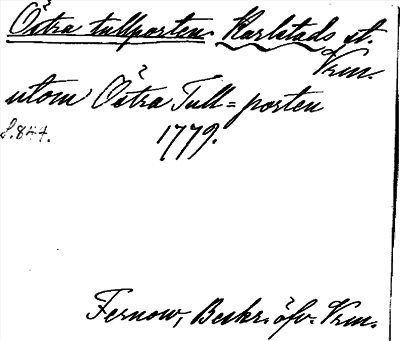 Östra tullporten Karlstads st.
Vrm.
utom Östra Tull=porten
S. 844. 1779.
Fernow, Beskr. öfv. Vrm.